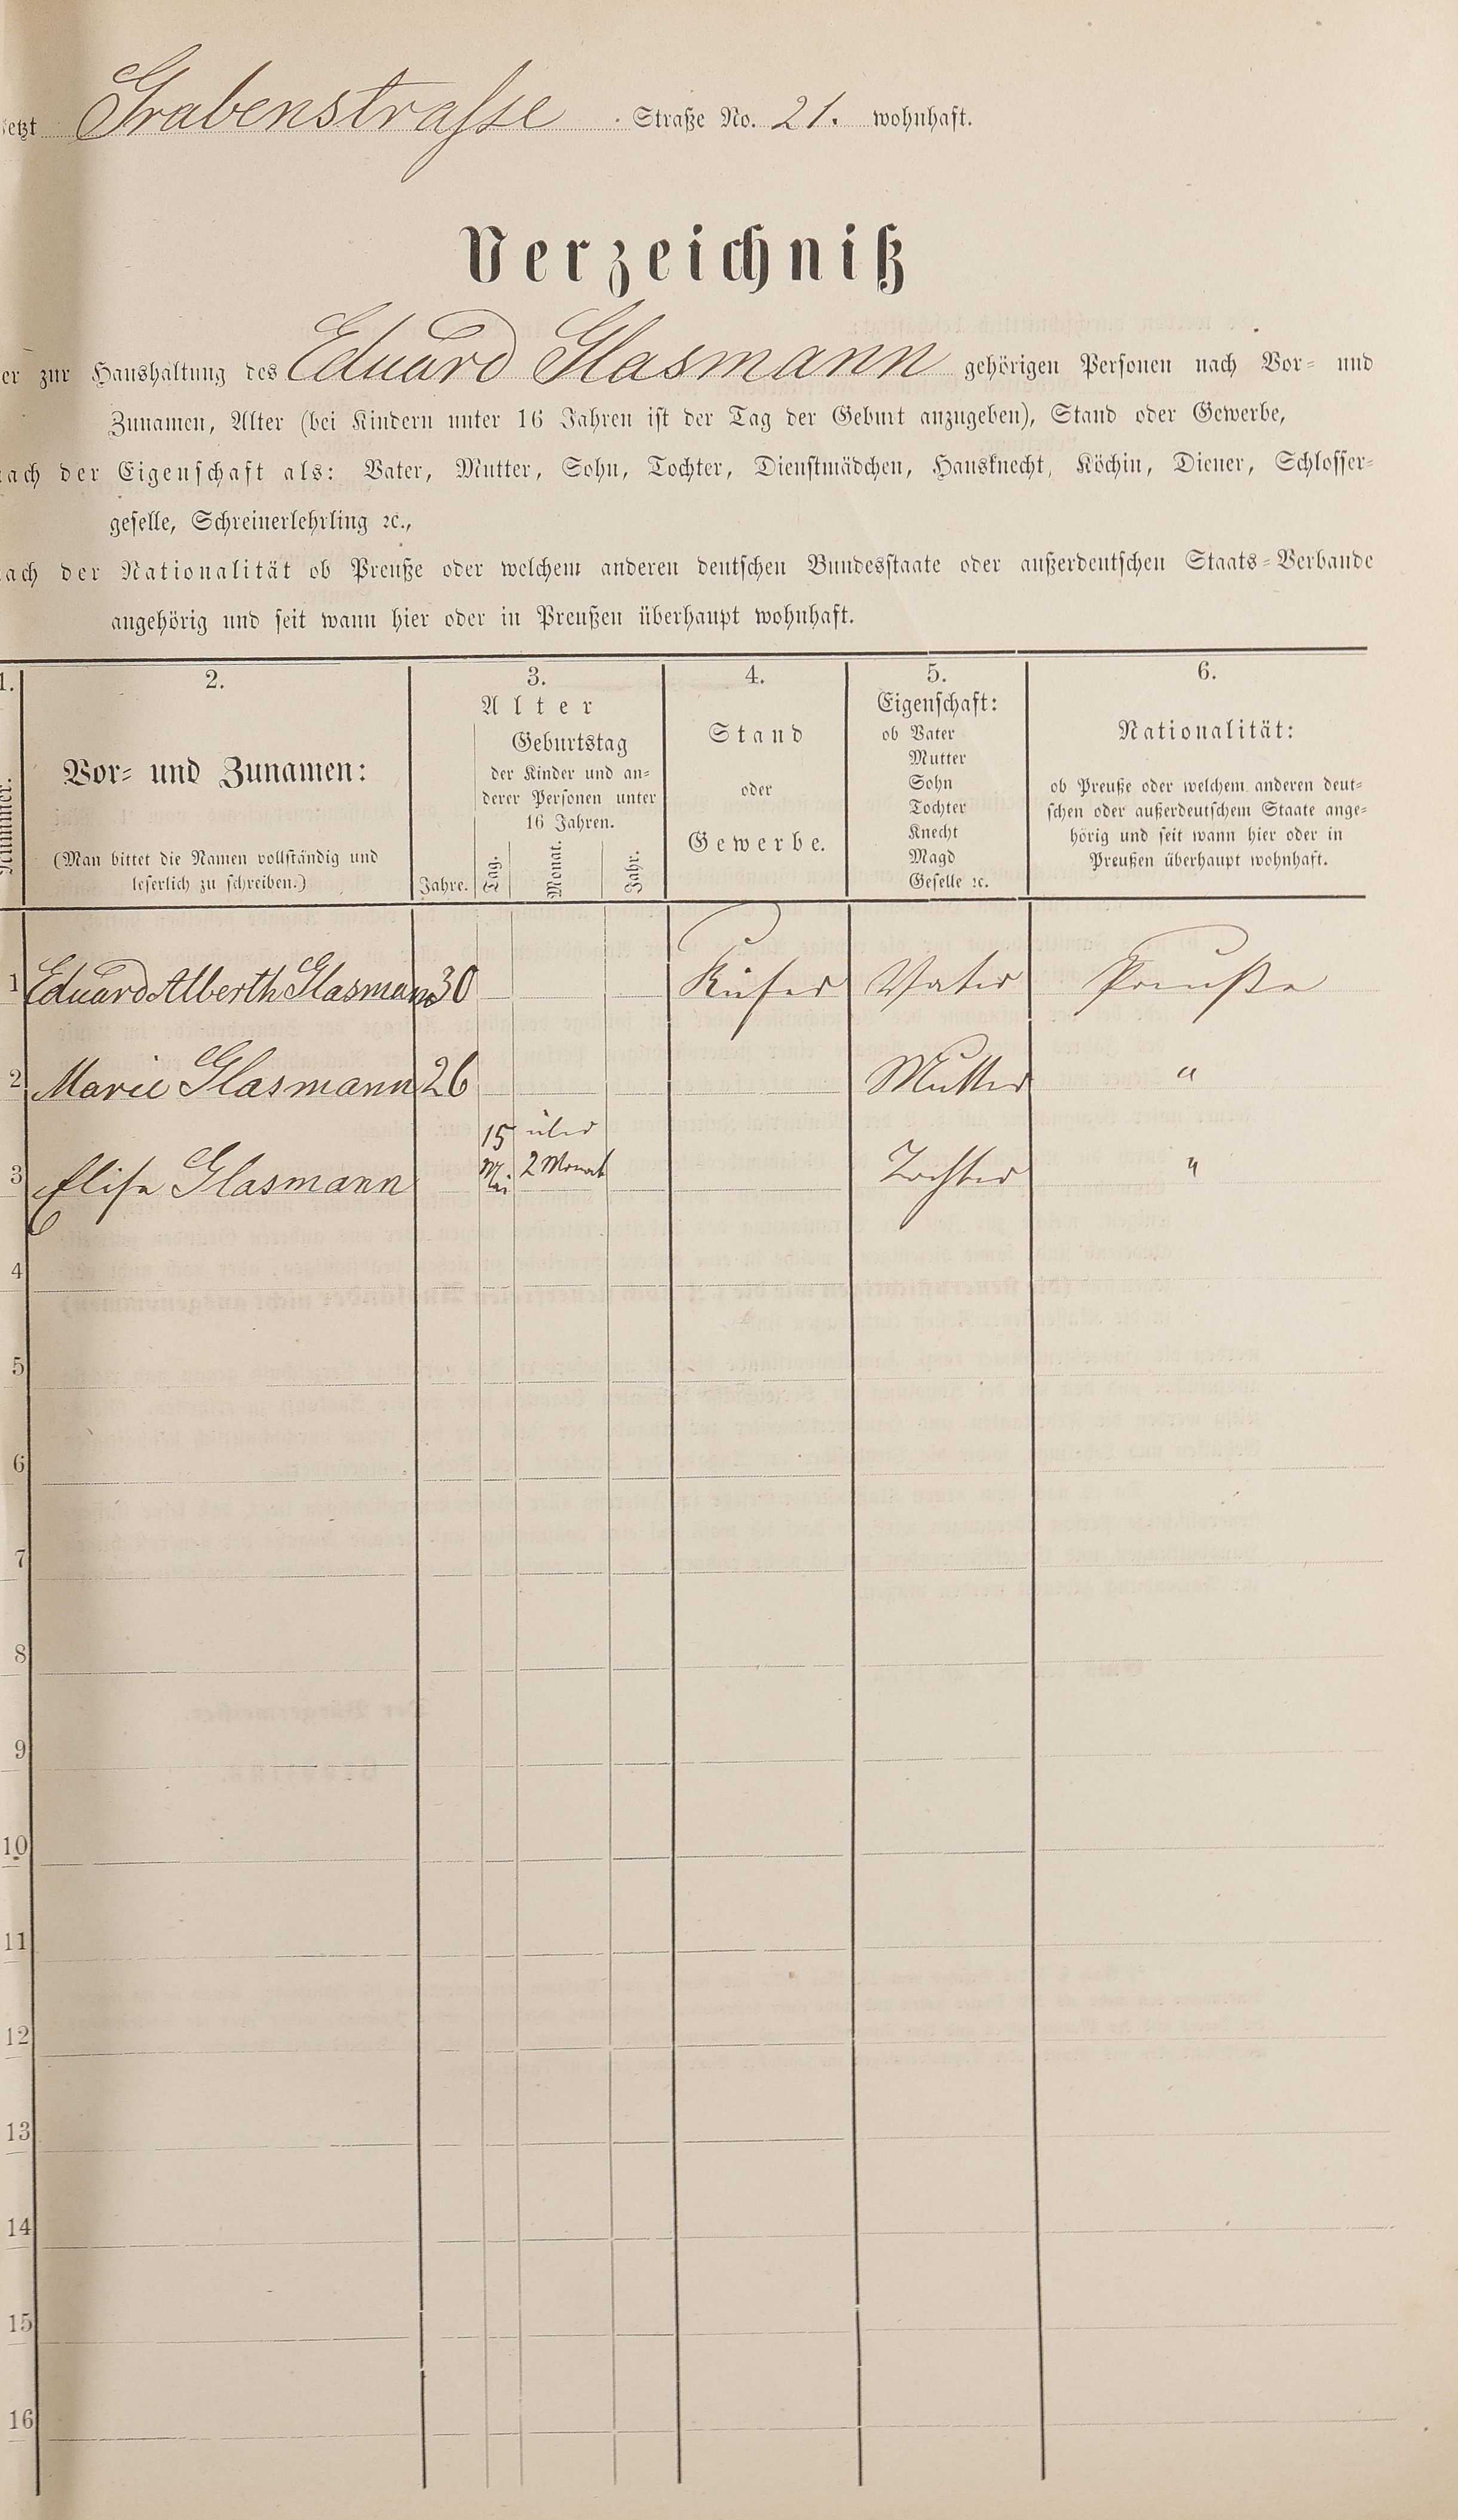 jetzt Grabenstrasse Straße No. 21. wohnhaft.
Verzeichniß
er zur Haushaltung des Eduard Glasmann gehörigen Personen nach Vor- und
Zunamen, Alter (bei Kindern unter 16 Jahren ist der Tag der Geburt anzugeben), Stand oder Gewerbe,
nach der Eigenschaft als: Vater, Mutter, Sohn, Tochter, Dienstmädchen, Hausknecht, Köchin, Diener, Schlosser-
geselle, Schreinerlehrling ꝛc.,
nach der Nationalität ob Preuße oder welchem anderen deutschen Bundesstaate oder außerdeutschen Staats-Verbande
angehörig und seit wann hier oder in Preußen überhaupt wohnhaft.
1.
Nummer.
2.
Vor- und Zunamen:
(Man bittet die Namen vollständig und
leserlich zu schreiben.)
3.
Alter
Geburtstag
der Kinder und an-
derer Personen unter
16 Jahren.
Jahre. Tag. Monat. Jahr.
4.
Stand
oder
Gewerbe.
5.
Eigenschaft:
ob Vater
Mutter
Sohn
Tochter
Knecht
Magd
Geselle ꝛc.
6.
Nationalität:
ob Preuße oder welchem anderen deut-
schen oder außerdeutschem Staate ange-
hörig und seit wann hier oder in
Preußen überhaupt wohnhaft.
1 Eduard Alberth Glasmann 30 Küfer Vater Preuße
2 Marie Glasmann 26 Mutter "
3 Elise Glasmann 15 Mai über 2 Monat Tochter "
4
5
6
7
8
9
10
11
12
13
14
15
16